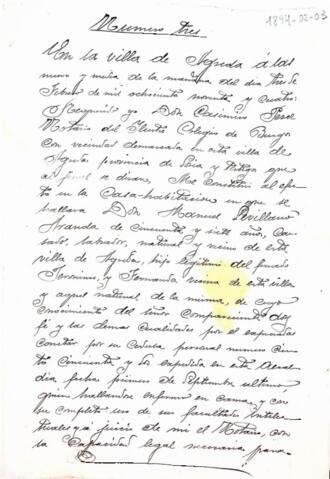 1894-02-03
Numero tres
En la villa de Agreda á las
nueve y media de la mañana del dia tres de
Febrero de mil ochocientos noventa y cuatro:
Requerido yo Don Casimiro
Notario del Ilustre Colegio de Burgos
con vecindad demarcada en esta villa de
Agreda provincia de Soria y testigos que
al final se diran, Me constituí al efec
to en la Casa-habitacion en que se
hallaba Don Manuel Sevillano
Aranda de cincuenta y siete años, ca
sado, labrador, natural y vecino de esta
villa de Agreda, hijo legitimo del finado
Jeronimo, y Fernanda vecina de esta villa
y aquel natural de la misma, de cuyo
conocimiento del señor compareciente doy
fé y las demas cualidades por el expresadas
constar por su cedula personal numero cien
to cincuenta y dos expedida en esta Alcal
dia fecha primero de Septembre ultimo
quien hallandose enfermo en cama, y con
su completo uso de sus facultades intelec
tuales y á juicio de mi el Notario, con
la Capacidad legal necesaria para